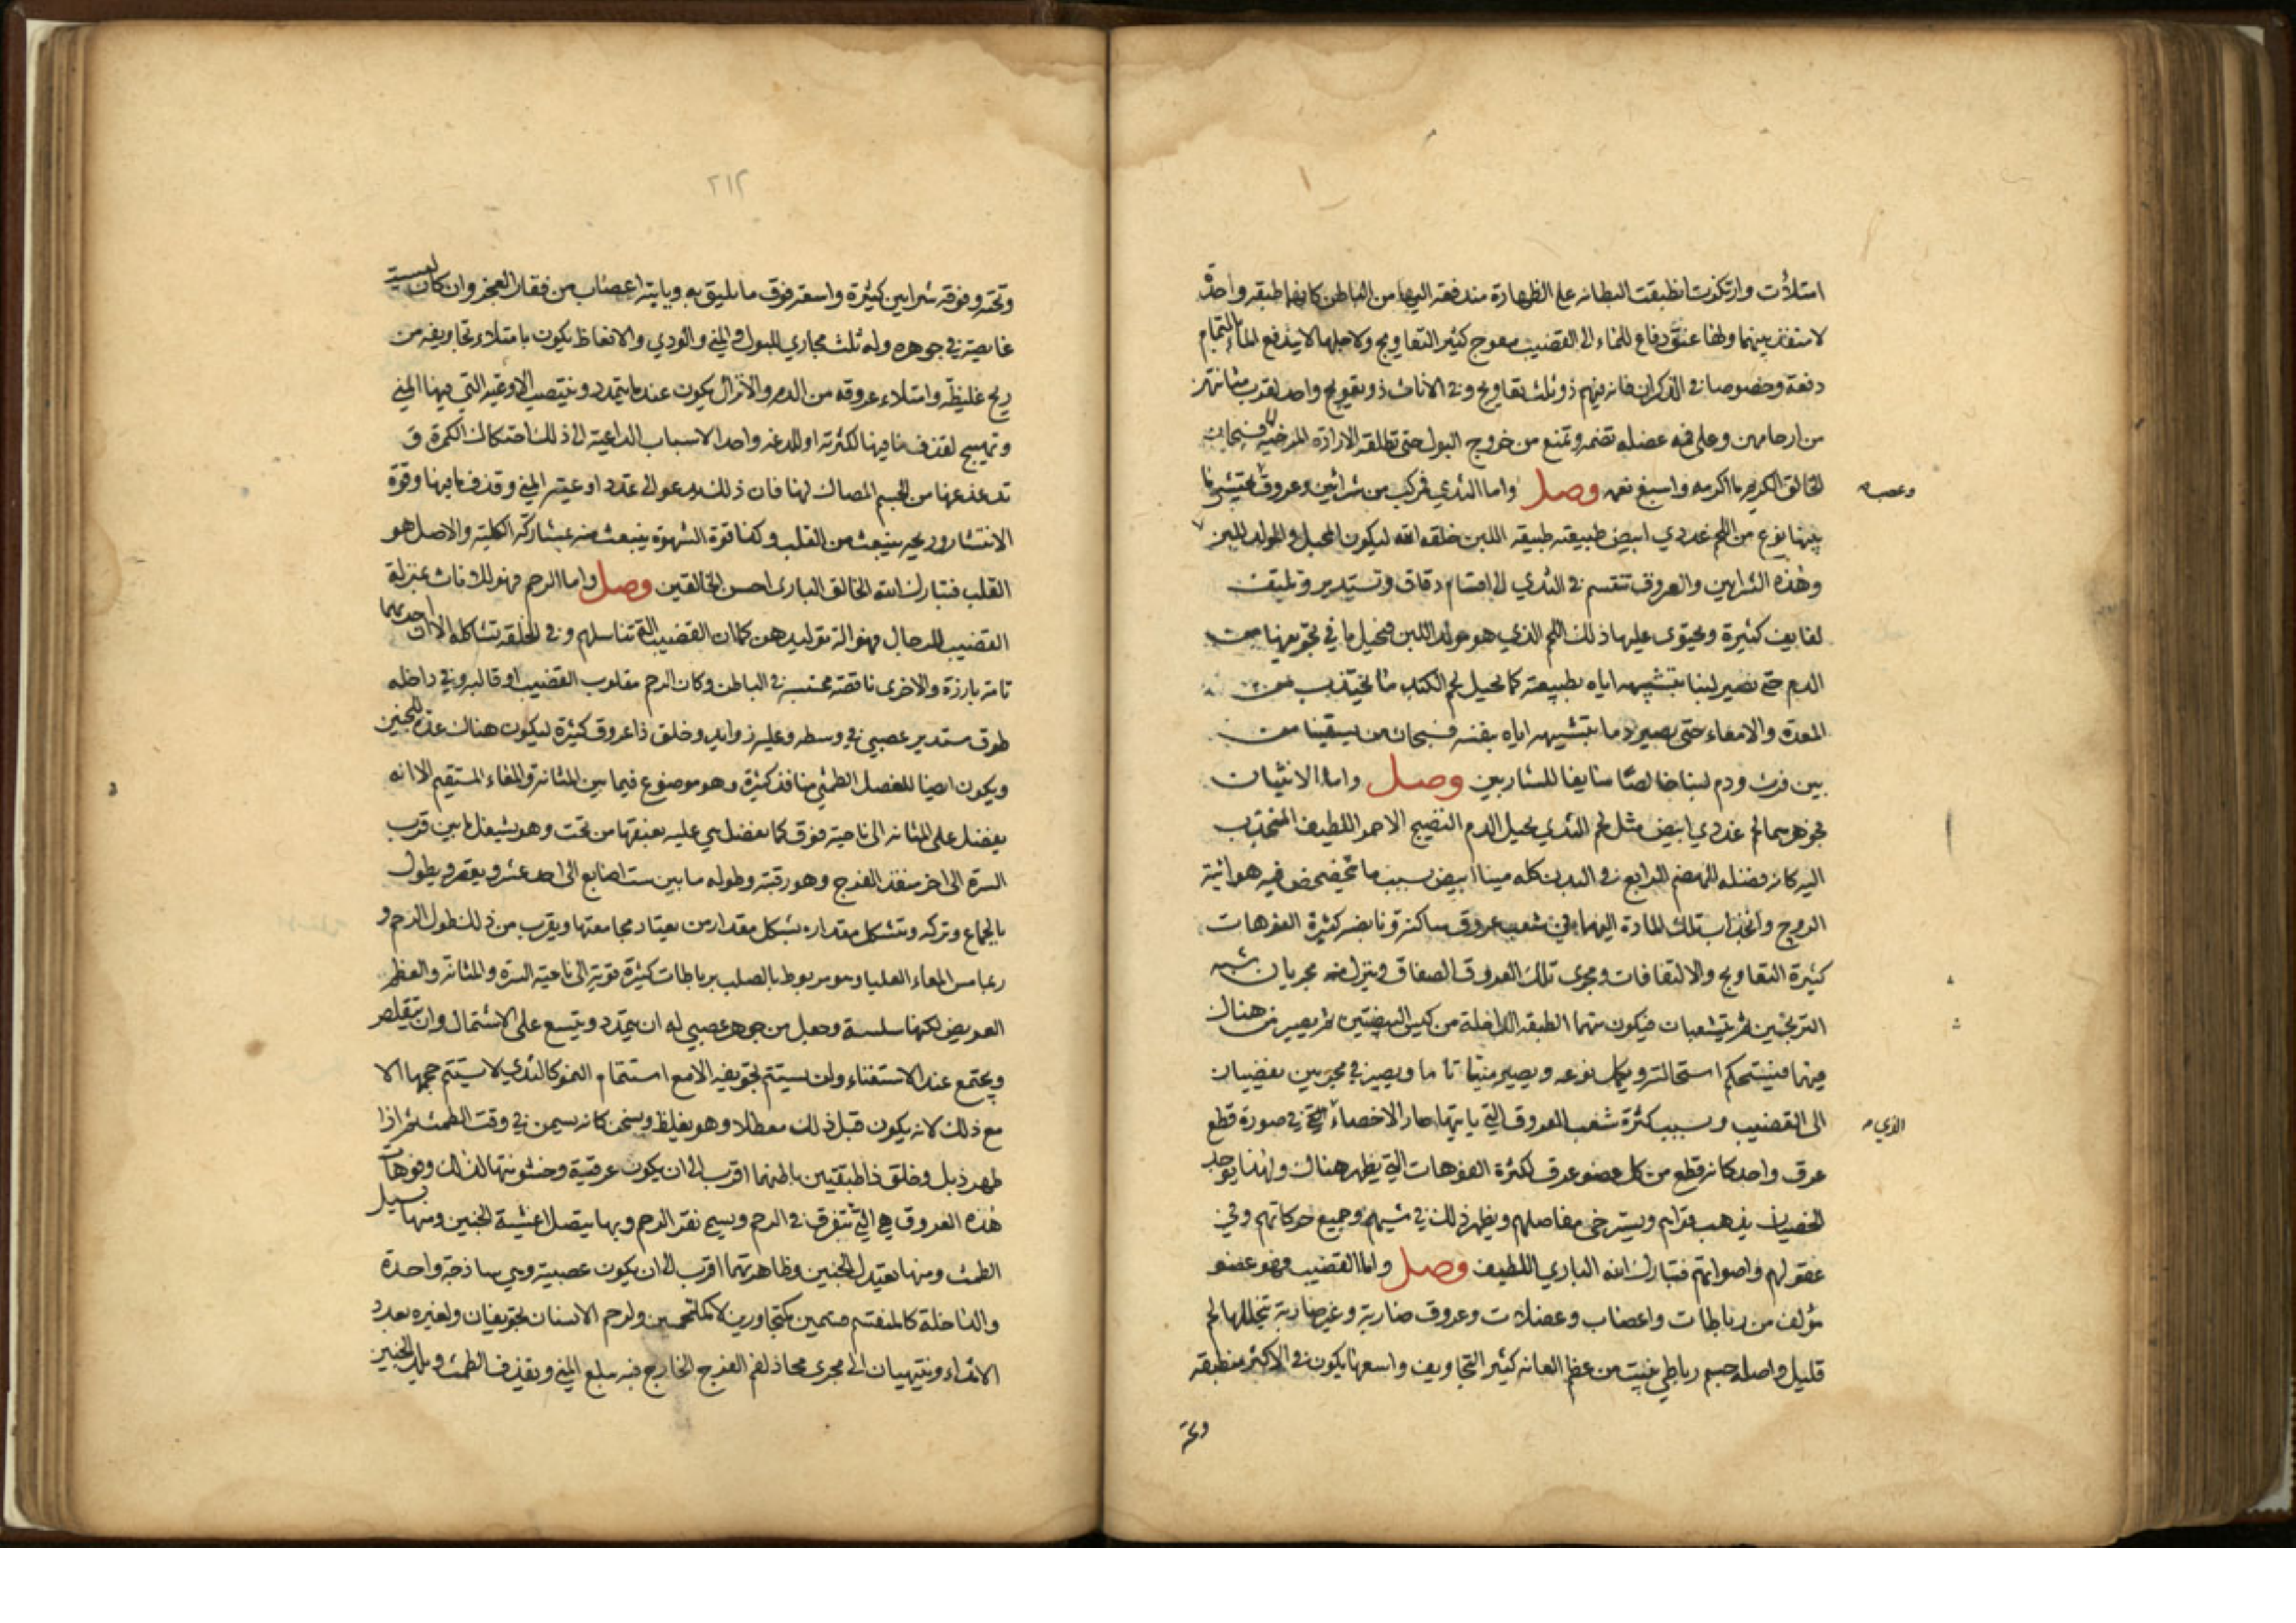 امتلأت وارتكزت انطبقت البطانه على الظهارة مندفعة اليها من الباطن كانهما طبقه واحدة
لا منفذ بينهما ولها عنق دفاع للماء الى القضيب معوج كثير التعاويج ولاجلها لا يندفع الماء بالتمام
دفعة وخصوصا في الذكران فانه فيهم ذو ثلث تعاويج وفي الاناث ذو تعويج واحد لقرب مثانتهن
من ارحامهن وعلى فمه عضله تضمه وتمنع من خروج البول حتى تطلقه الارادة المرخية لها فسبحان
الخالق الكريم ما اكرمه واسبغ نعمه وصل واما الثدي فمركب من شرائين وعروق وعصب يحتشي ما
بينها نوع من اللحم غددي ابيض طبيعته طبيعة اللبن خلقه الله ليكون المحيل والمولد للبن
وهذه الشرايين والعروق تنقسم في الثدي الى اقسام دقاق وتستدير وتلتف
لفايف كثيرة ويحتوى عليها ذلك اللحم الذي هو مولد اللبن فيحيل ما في تجويفها من
الدم حتى يصير لبنا بتشبيهه اياه بطبيعته كما يحيل لحم الكبد ما يجتذب من
المعدة والامعاء حتى يصير دما بتشبيهه اياه بنفسه فسبحان من يسقينا من
بين فرث ودم لبنا خالصا سايغا للشاربين وصل واما الانثيان
فجوهرهما لحم غددي ابيض مثل لحم الثدي يحيل الدم النضيج الاحمر اللطيف المنجذب
اليه كانه فضله الهضم الرابع في البدن كله منيا ابيض بسبب ما يتخضخض فيه هوائية
الروح وانجذاب تلك المادة اليهما في شعب عروق ساكنة ونابضه كثيرة الفوهات
كثيرة التعاويج والالتفافات ومجرى تلك العروق الصفاق وينزل منه مجريان شبه
البربخين ثم يتشعبان فيكون منهما الطبقه الداخلة من كيس البيضتين ثم يصير من هناك
فيهما فيستحكم استحالته ويكمل نوعه ويصير منيا تاما ويصير في مجريين يفضيان
الى القضيب وبسبب كثرة شعب العروق التي ياتيها صار الاخصاء الذي في صورة قطع
عرق واحد كانه قطع من كل عضو عرق لكثرة الفوهات التي يظهر هناك ولهذا يوجد
الخصيان يذهب قواهم ويسترخى مفاصلهم ويظهر ذلك في مشيهم وجميع حركاتهم وفي
عقولهم واصواتهم فتبارك الله الباري اللطيف وصل واما القضيب فهو عضو
مؤلف من رباطات واعصاب وعضلات وعروق ضاربة وغير ضاربة يتخللها لحم
قليل واصله جسم رباطي ينبت من عظم العانه كثير التجاويف واسعها يكون في الاكثر منطبقه
وعصب
الذي
وتحته
٢١٢
وتحته وفوقه شرايين كثيرة واسعة فوق ما يليق به وياتيه اعصاب من فقار العجز وان كان ليست
غايصة في جوهره وله ثلث مجاري للبول والمني والودي والانعاظ يكون بامتلاء تجاويفه من
ريح غليظة وامتلاء عروقه من الدم والانزال يكون عندما يتمدد وينتصب الاوعية التي فيها المني
وتهيج لقذف ما فيها لكثرته او للدغه واحد الاسباب الداعية الى ذلك احتكاك الكمرة و
تدغدغها من الجسم المصاك لها فان ذلك يدعو الى تمدد اوعية المني وقذف ما فيها وقوة
الانتشار وريحه ينبعث من القلب وكذا قوة الشهوة ينبعث منه بمشاركة الكلية والاصل هو
القلب فتبارك الله الخالق البارى احسن الخالقين وصل واما الرحم فهو للاناث بمنزلة
القضيب للرجال فهو آلة توليدهن كما ان القضيب آلة تناسلهم وفي الخلقة تشاكله الا ان احديهما
تامة بارزة والاخرى ناقصة محتبسة في الباطن وكان الرحم مقلوب القضيب او قالبه وفي داخله
طوق مستدير عصبي في وسطه وعليه زوايد وخلق ذا عروق كثيرة ليكون هناك عدة للجنين
ويكون ايضا للفضل الطمثي منافذ كثيرة وهو موضوع فيما بين المثانة والمعاء المستقيم الا انه
يفضل على المثانه الى ناحية فوق كما يفضل هي عليه بعنقها من تحت وهو يشغل ما بين قرب
السرة الى اخر منفذ الفرج وهو رقبته وطوله ما بين ست اصابع الى احد عشر ويقصر ويطول
بالجماع وتركه ويتشكل مقداره بشكل مقدار من يعتاد مجامعتها ويقرب من ذلك طول الرحم و
ربما مس المعاء العليا وهو مربوط بالصلب برباطات كثيرة قوية الى ناحية السرة والمثانة والعظم
العريض لكنها سلسة وجعل من جوهر عصبي له ان يتمدد ويتسع على الاشتمال وان يتقلص
ويجتمع عند الاستغناء ولن يستتم تجويفه الا مع استتمام النمو كالثدي لا يستتم حجمها الا
مع ذلك لانه يكون قبل ذلك معطلا وهو يغلظ ويسخن كانه يسمن في وقت الطمث ثم اذا
طهر ذبل وخلق ذا طبقتين باطنهما اقرب الى ان يكون عرقية وخشونتها لذلك وفوهات
هذه العروق هي التي تتفرق في الرحم ويسمى نقر الرحم وبها يتصل اغشية الجنين ومنها يسيل
الطمث ومنها يغتذي الجنين وظاهرتهما اقرب الى ان يكون عصبية وهي ساذجة واحدة
والداخلة كالمنقسم قسمين متجاورين لا كملتحمين ولرحم الانسان تجويفان ولغيره بعدد
الاثداء وينتهيان الى مجرى محاذ لفم الفرج الخارج فيه يبلع المني ويقذف الطمث ويلد الجنين